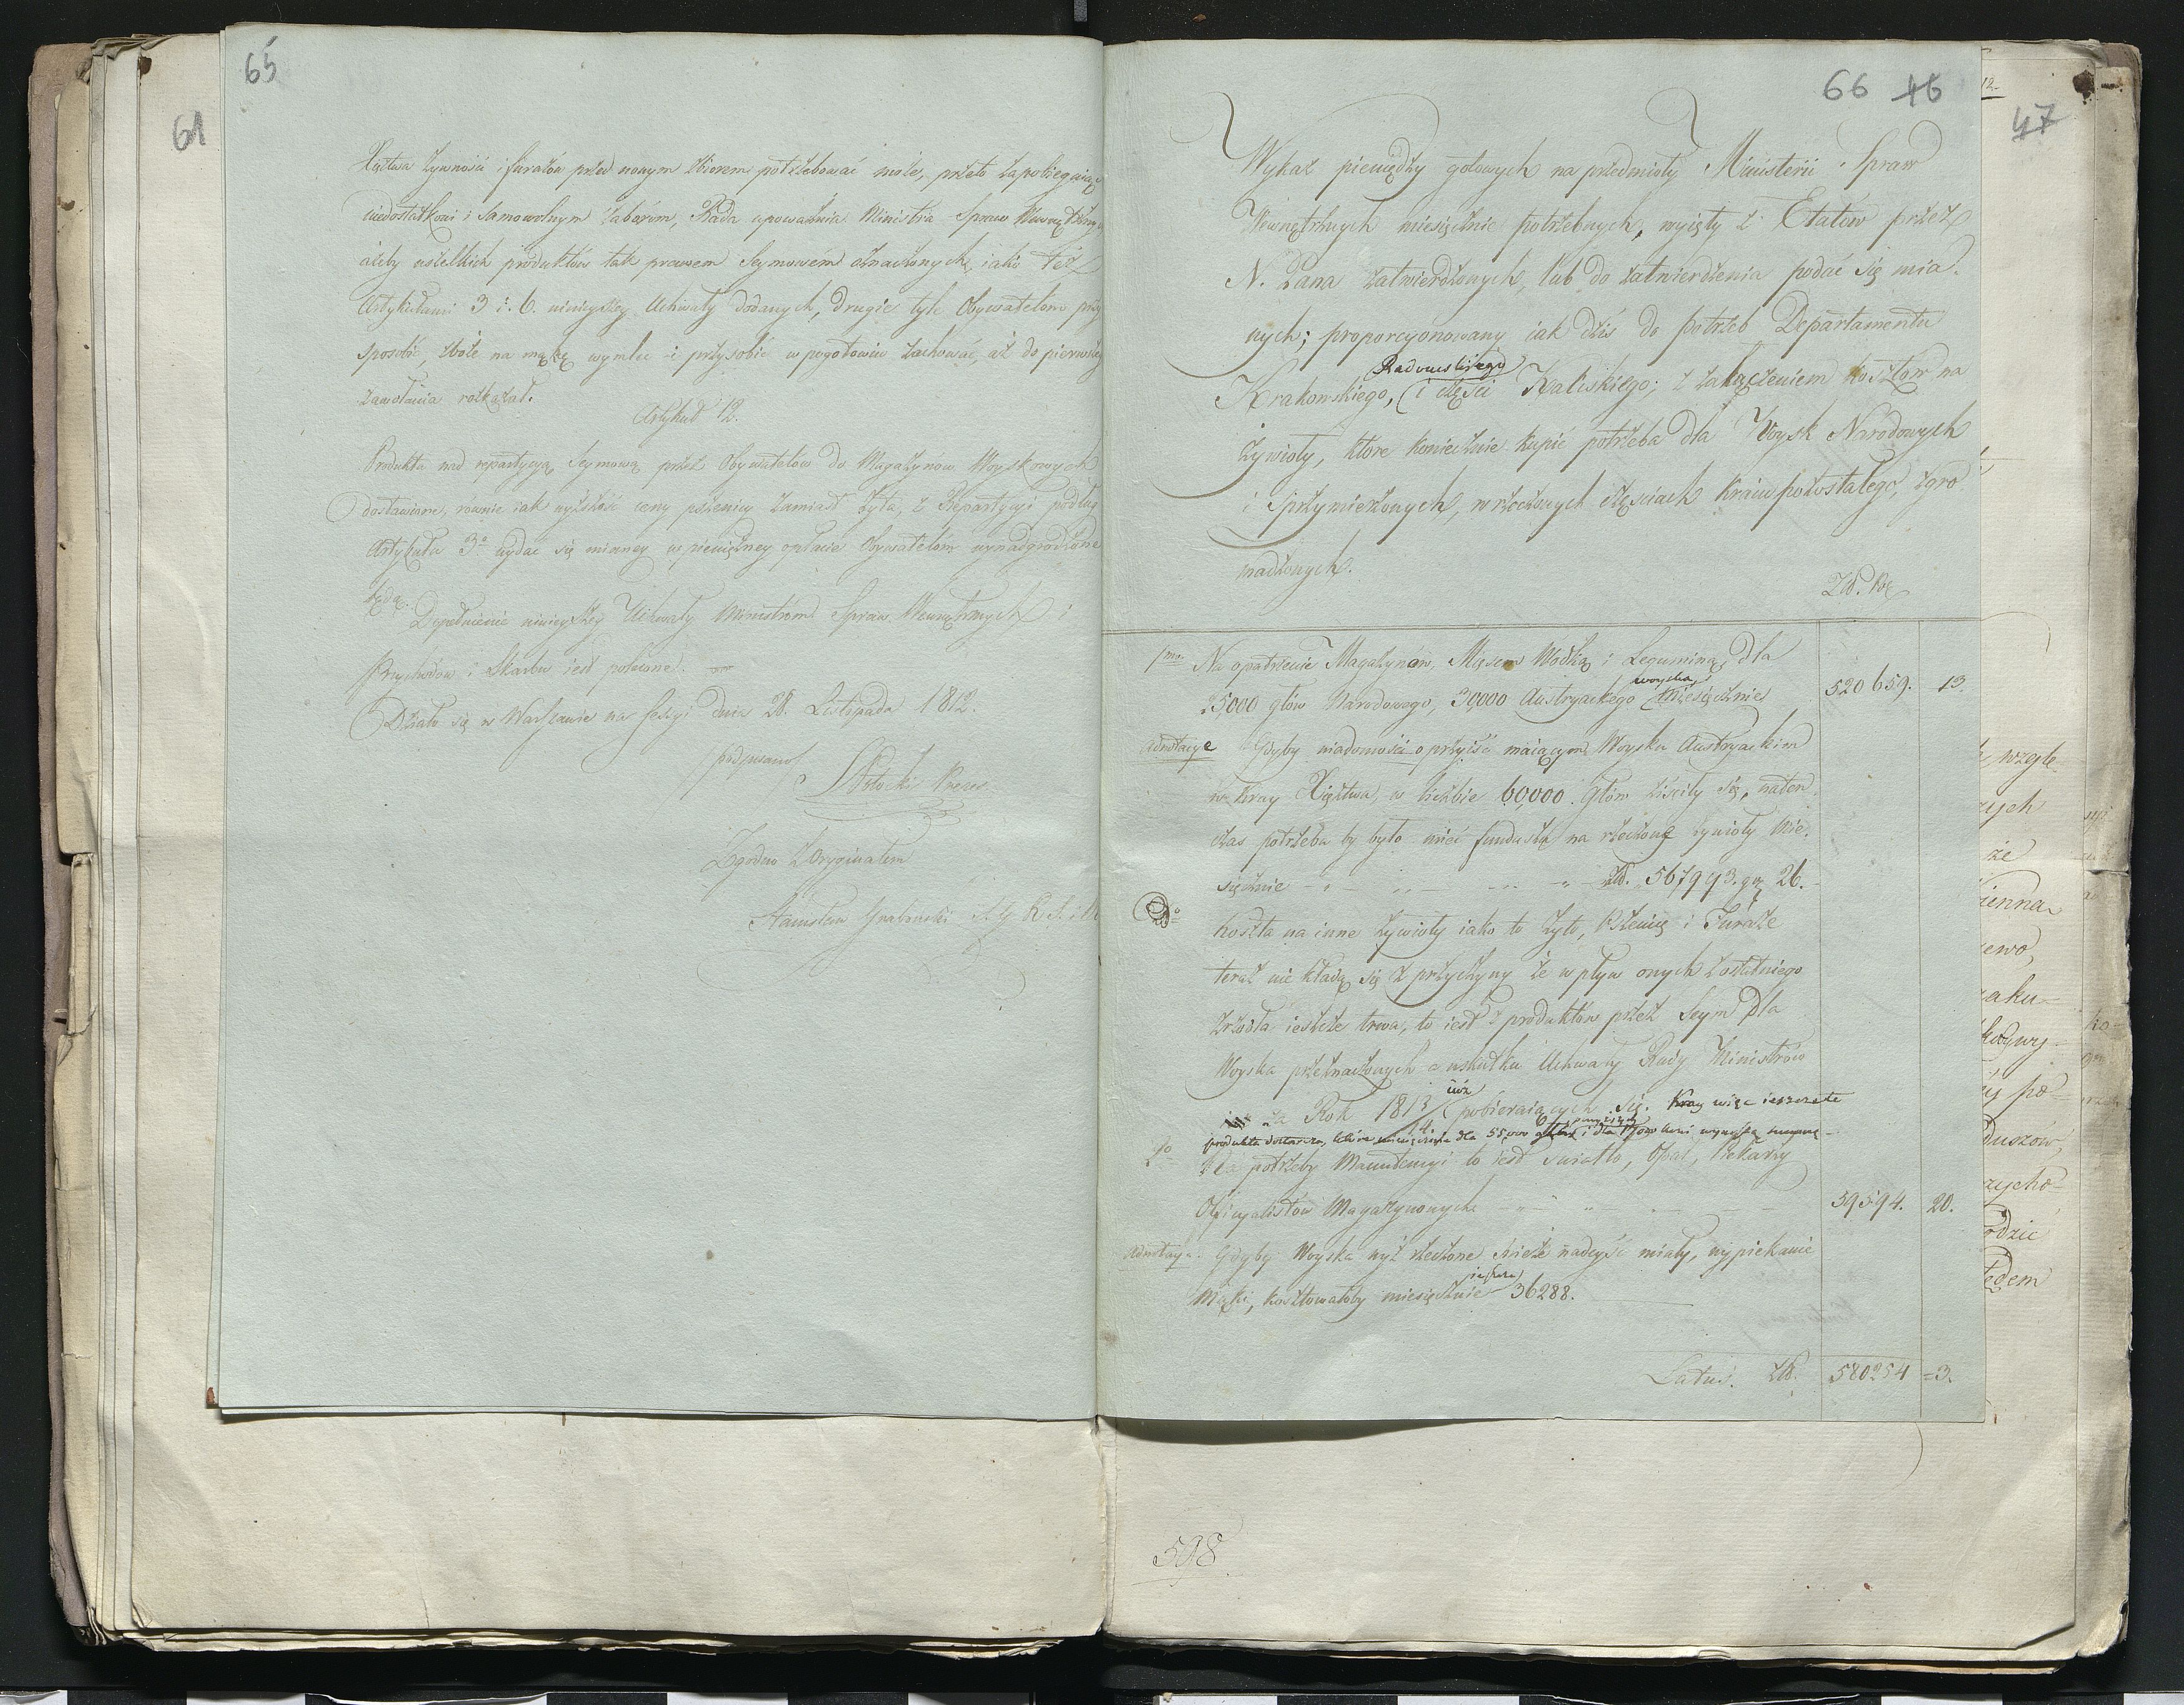 65
61
Xięstwa żywności i furażów przed nowym zbiorem potrzebować może, przeto zapobiegaiąc
niedostatkowi i samowolnym zaborom, Rada upoważnia Ministra Spraw Wewnętrznych
ażeby wszelkich produktów tak prawem Seymowém oznaczonych, iako też
Artykułami 3 i 6. ninieyszey Uchwały dodanych, drugie tyle Obywatelom przy
sposobić, zboże na mąkę wymleć i przysobić w pogotowiu zachować, aż do pierwszego
zawołania rozkazał.
Artykuł 12.
Produkta nad repartycyą Seymową przez Obywatelów do Magazynów Woyskowych
dostawione, równie iak wyższość ceny pszenicy zamiast żyta, z Repartycyi podług
Artykułu 3º wydać się mianey w pieniężney opłacie Obywatelóm wynadgrodzone
będą.
Dopełnienie ninieyszey Uchwały Ministrom Spraw Wewnętrznych i
Przychodow i Skarbu iest polecone.
Działo się w Warszawie na Sessyi dnia 28. Listopada 1812.
podpisano
S Potocki Prezes
Zgodno z Oryginałem
Stanisław Grabowski S. G. R. S. i M
66 46
47
Wykaz pieniędzy gotowych na przedmioty Ministerii Spraw
Wewnętrznych miesięcznie potrzebnych, wyięty z Etatów przez
N. Pana zatwierdzonych, lub do zatwierdzenia podać się mia-
nych; proporcyonowany iak dziś do potrzeb Departamentu
Radomskiego
Krakowskiego, (i części Kaliskiego; z załączeniem kosztów na
żywioły, które koniecznie kupić potrzeba dla Woysk Narodowych
i Sprzymierzonych, w rzeczonych częściach Kraiu pozostałego, zgro
madzonych.
Zł. Pol
1mo. Na opatrzenie Magazynów, Mięsem Wodką i Leguminą, dla
woyska
25000 głów Narodowego, 30,000 Austryackego (Miesięcznie 520659. 13.
Adnotacye Gdyby wiadomości o przyiść maiącym Woysku Austryackim
w Kray Xięstwa, w liczbie 60,000. głów ziściły się, naten
czas potrzeba by było mieć funduszu na rzeczone żywioły Mie-
sięcznie - - - - zł. 567943. gr. 26.
2º Koszta na inne żywioły iako to żyto, Pszenicę i Furaże
teraz nie kładą się z przyczyny że wpływ onych z ostatniego
zrzódła ieszcze trwa, to iest z produktów przez Seym dla
Woyska przeznaczonych a wskutku Uchwały Rady Ministrów
iuż
za Rok 1813 (pobieraiących się. Kray więc ieszcze te
produkta dostarcza, które miesięcznie dla 55,000 głów i dla koni wynoszą
2do Na potrzeby Manutencyi to iest światło, Opał, Piekarzy
Officyalistów Magazynowych - - - 59594. 20.
Adnotacya. Gdyby Woyska wyż rzeczone świeże nadeyść miały, wypiekanie
ieszcze
Mąki, kosztowałoby miesięcznie 36288.
Latus. zł. 580254 = 3.
598
12.
wzglę
ych
że
ienna
ewo,
aku-
duszów,
rzycho-
rdzić
ędem